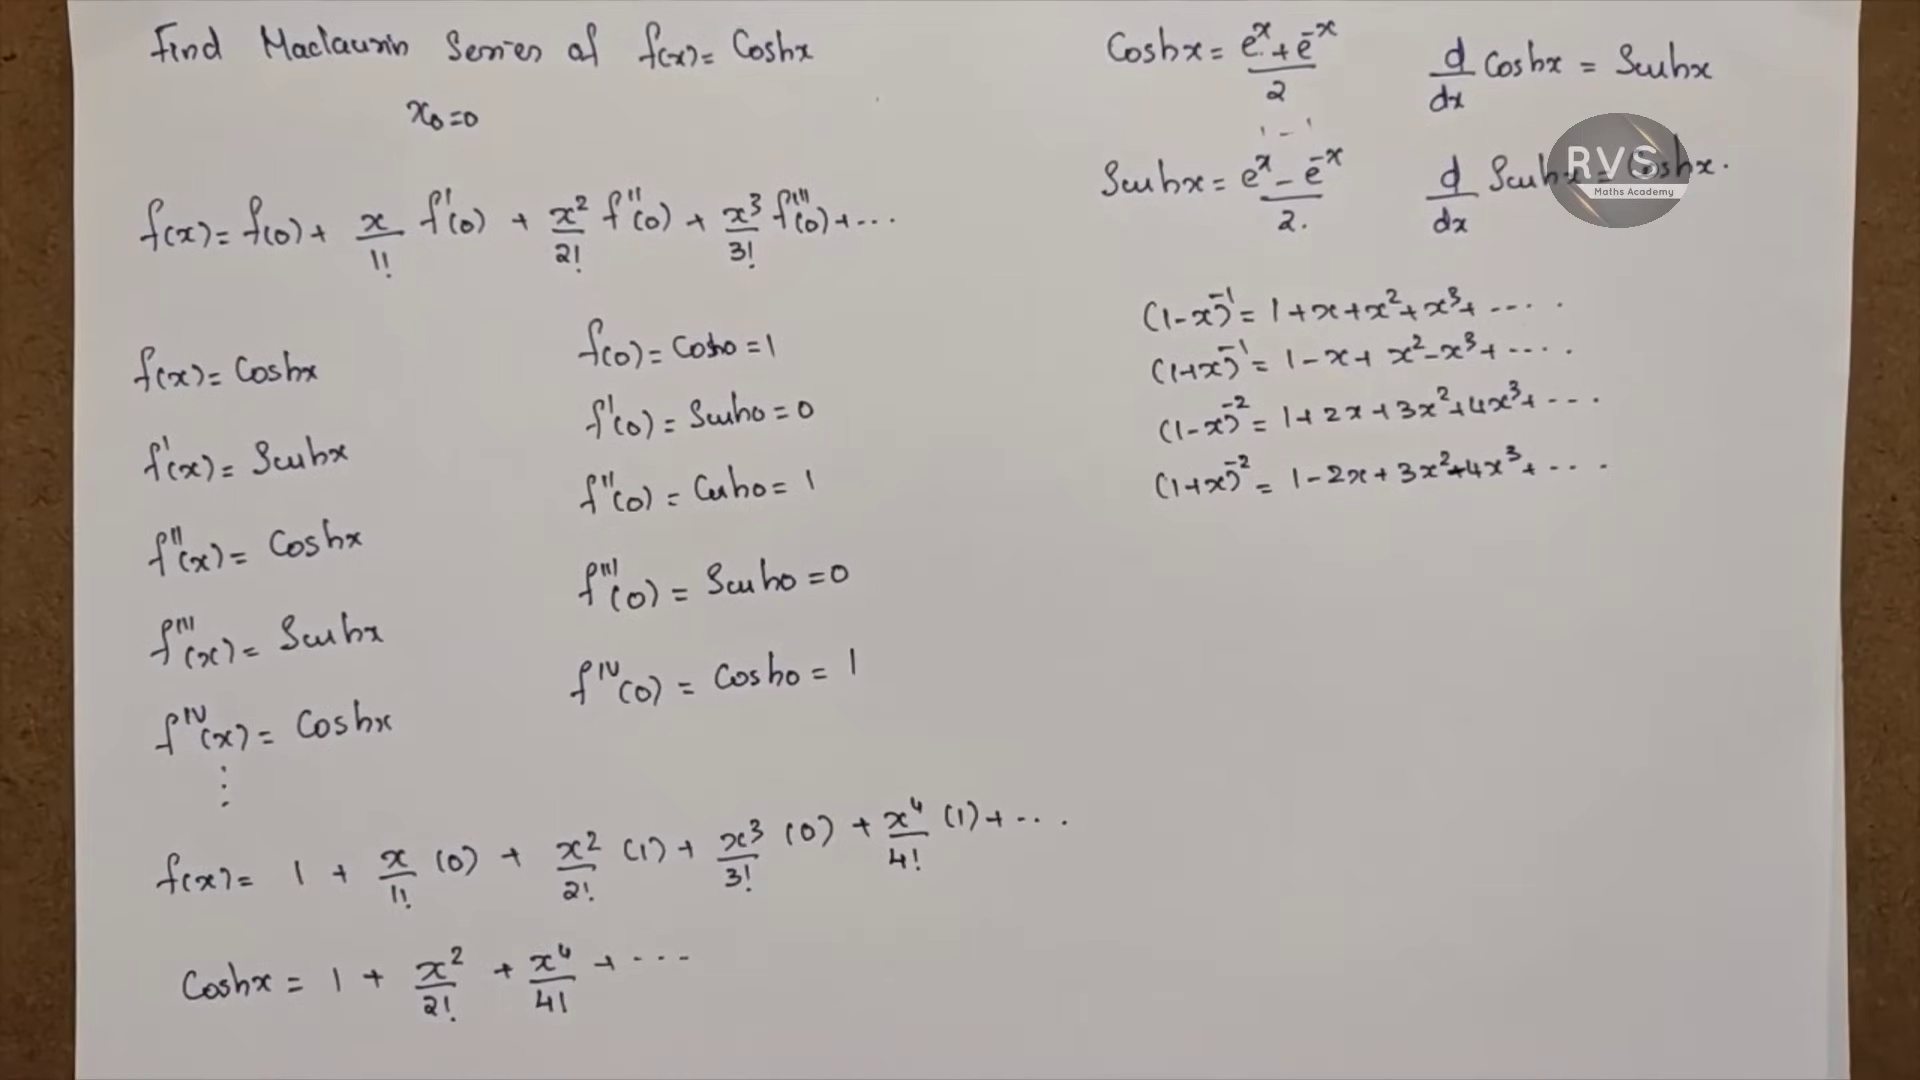 Find Maclaurin Series of f(x) = Coshx
x₀=0
f(x) = f(0) + x/1! f'(0) + x²/2! f''(0) + x³/3! f'''(0) + ...
f(x) = Coshx
f(0) = Cosh0 = 1
f'(x) = Sinhx
f'(0) = Sinh0 = 0
f''(x) = Coshx
f''(0) = Cosh0 = 1
f'''(x) = Sinhx
f'''(0) = Sinh0 = 0
f^IV(x) = Coshx
f^IV(0) = Cosh0 = 1
⋮
f(x) = 1 + x/1! (0) + x²/2! (1) + x³/3! (0) + x⁴/4! (1) + ...
Coshx = 1 + x²/2! + x⁴/4! + ...
Coshx = (e^x + e^-x)/2
d/dx Coshx = Sinhx
Sinhx = (e^x - e^-x)/2.
d/dx Sinhx = Coshx.
RVS
Maths Academy
(1-x)^-1 = 1+x+x²+x³+ .....
(1+x)^-1 = 1-x+x²-x³+ .....
(1-x)^-2 = 1+2x+3x²+4x³+ ....
(1+x)^-2 = 1-2x+3x²-4x³+ ....